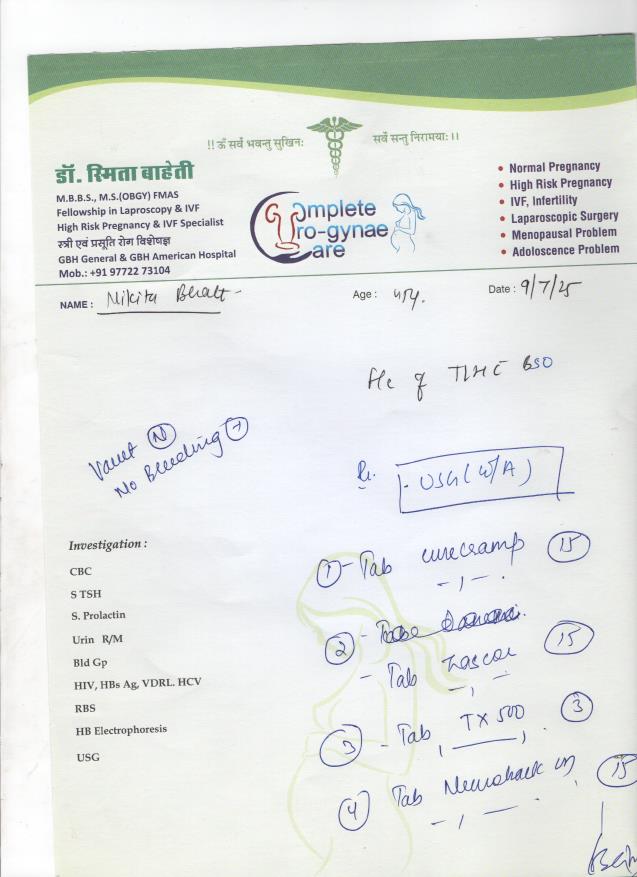 !! ॐ सर्वे भवन्तु सुखिनः सर्वे सन्तु निरामयाः ।।
डॉ. स्मिता बाहेती
M.B.B.S., M.S.(OBGY) FMAS
Fellowship in Laproscopy & IVF
High Risk Pregnancy & IVF Specialist
स्त्री एवं प्रसूति रोग विशेषज्ञ
GBH General & GBH American Hospital
Mob.: +91 97722 73104
Complete
Uro-gynae
Care
• Normal Pregnancy
• High Risk Pregnancy
• IVF, Infertility
• Laparoscopic Surgery
• Menopausal Problem
• Adoloscence Problem
NAME : Nikita Bhatt Age : Date : 9/7/25
TLH BSO
Vault N
No Bleeding
USG (W/A)
Investigation :
CBC
S TSH
S. Prolactin
Urin R/M
Bld Gp
HIV, HBs Ag, VDRL. HCV
RBS
HB Electrophoresis
USG
1 - Tab curecramp 15
- 1 - .
2 -
- Tab 15
- 1 -
3 - Tab TX 500 3
4 Tab 15
- 1 - .